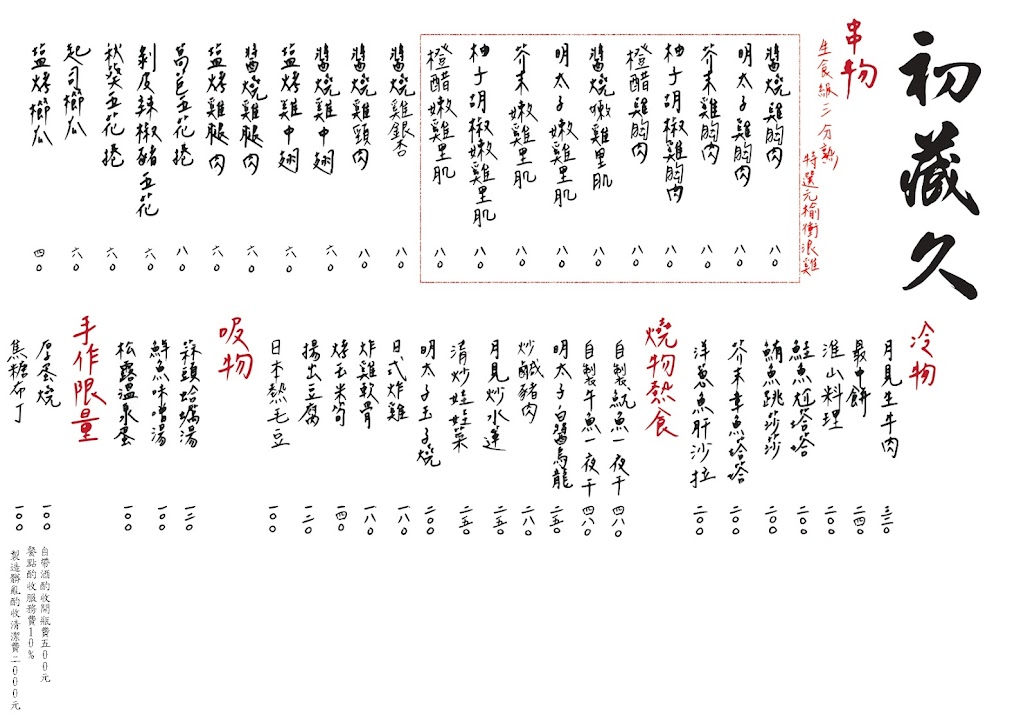 初藏久
串物
生食級三分熟
特選元榆衝浪雞
醬燒雞胸肉 八〇
明太子雞胸肉 八〇
芥末雞胸肉 八〇
柚子胡椒雞胸肉 八〇
橙醋雞胸肉 八〇
醬燒嫩雞里肌 八〇
明太子嫩雞里肌 八〇
芥末嫩雞里肌 八〇
柚子胡椒嫩雞里肌 八〇
橙醋嫩雞里肌 八〇
醬燒雞銀杏 八〇
醬燒雞頸肉 八〇
醬燒雞中翅 六〇
塩烤雞中翅 六〇
醬燒雞腿肉 六〇
塩烤雞腿肉 六〇
萵苣五花捲 八〇
剝皮辣椒豬五花 六〇
秋葵五花捲 六〇
起司櫛瓜 六〇
塩烤櫛瓜 四〇
冷物
月見生牛肉 三二〇
最中餅 二四〇
淮山料理 二〇〇
鮭魚尬塔塔 二〇〇
鮪魚跳莎莎 二〇〇
芥末章魚塔塔 二〇〇
洋蔥魚肝沙拉 二〇〇
燒物熱食
自製魷魚一夜干 四八〇
自製午魚一夜干 四八〇
明太子白醬烏龍 二五〇
炒鹹豬肉 二八〇
月見炒水蓮 二五〇
清炒娃娃菜 二五〇
明太子玉子燒 二〇〇
日式炸雞 一八〇
炸雞軟骨 一八〇
烤玉米筍 一四〇
揚出豆腐 一二〇
日本熱毛豆 一〇〇
吸物
蒜頭蛤蠣湯 一二〇
鮮魚味噌湯 一〇〇
松露溫泉蛋 一〇〇
手作限量
厚蛋燒 一〇〇
焦糖布丁 一〇〇
自帶酒酌收開瓶費五〇〇元
餐點酌收服務費10%
製造髒亂酌收清潔費二〇〇〇元